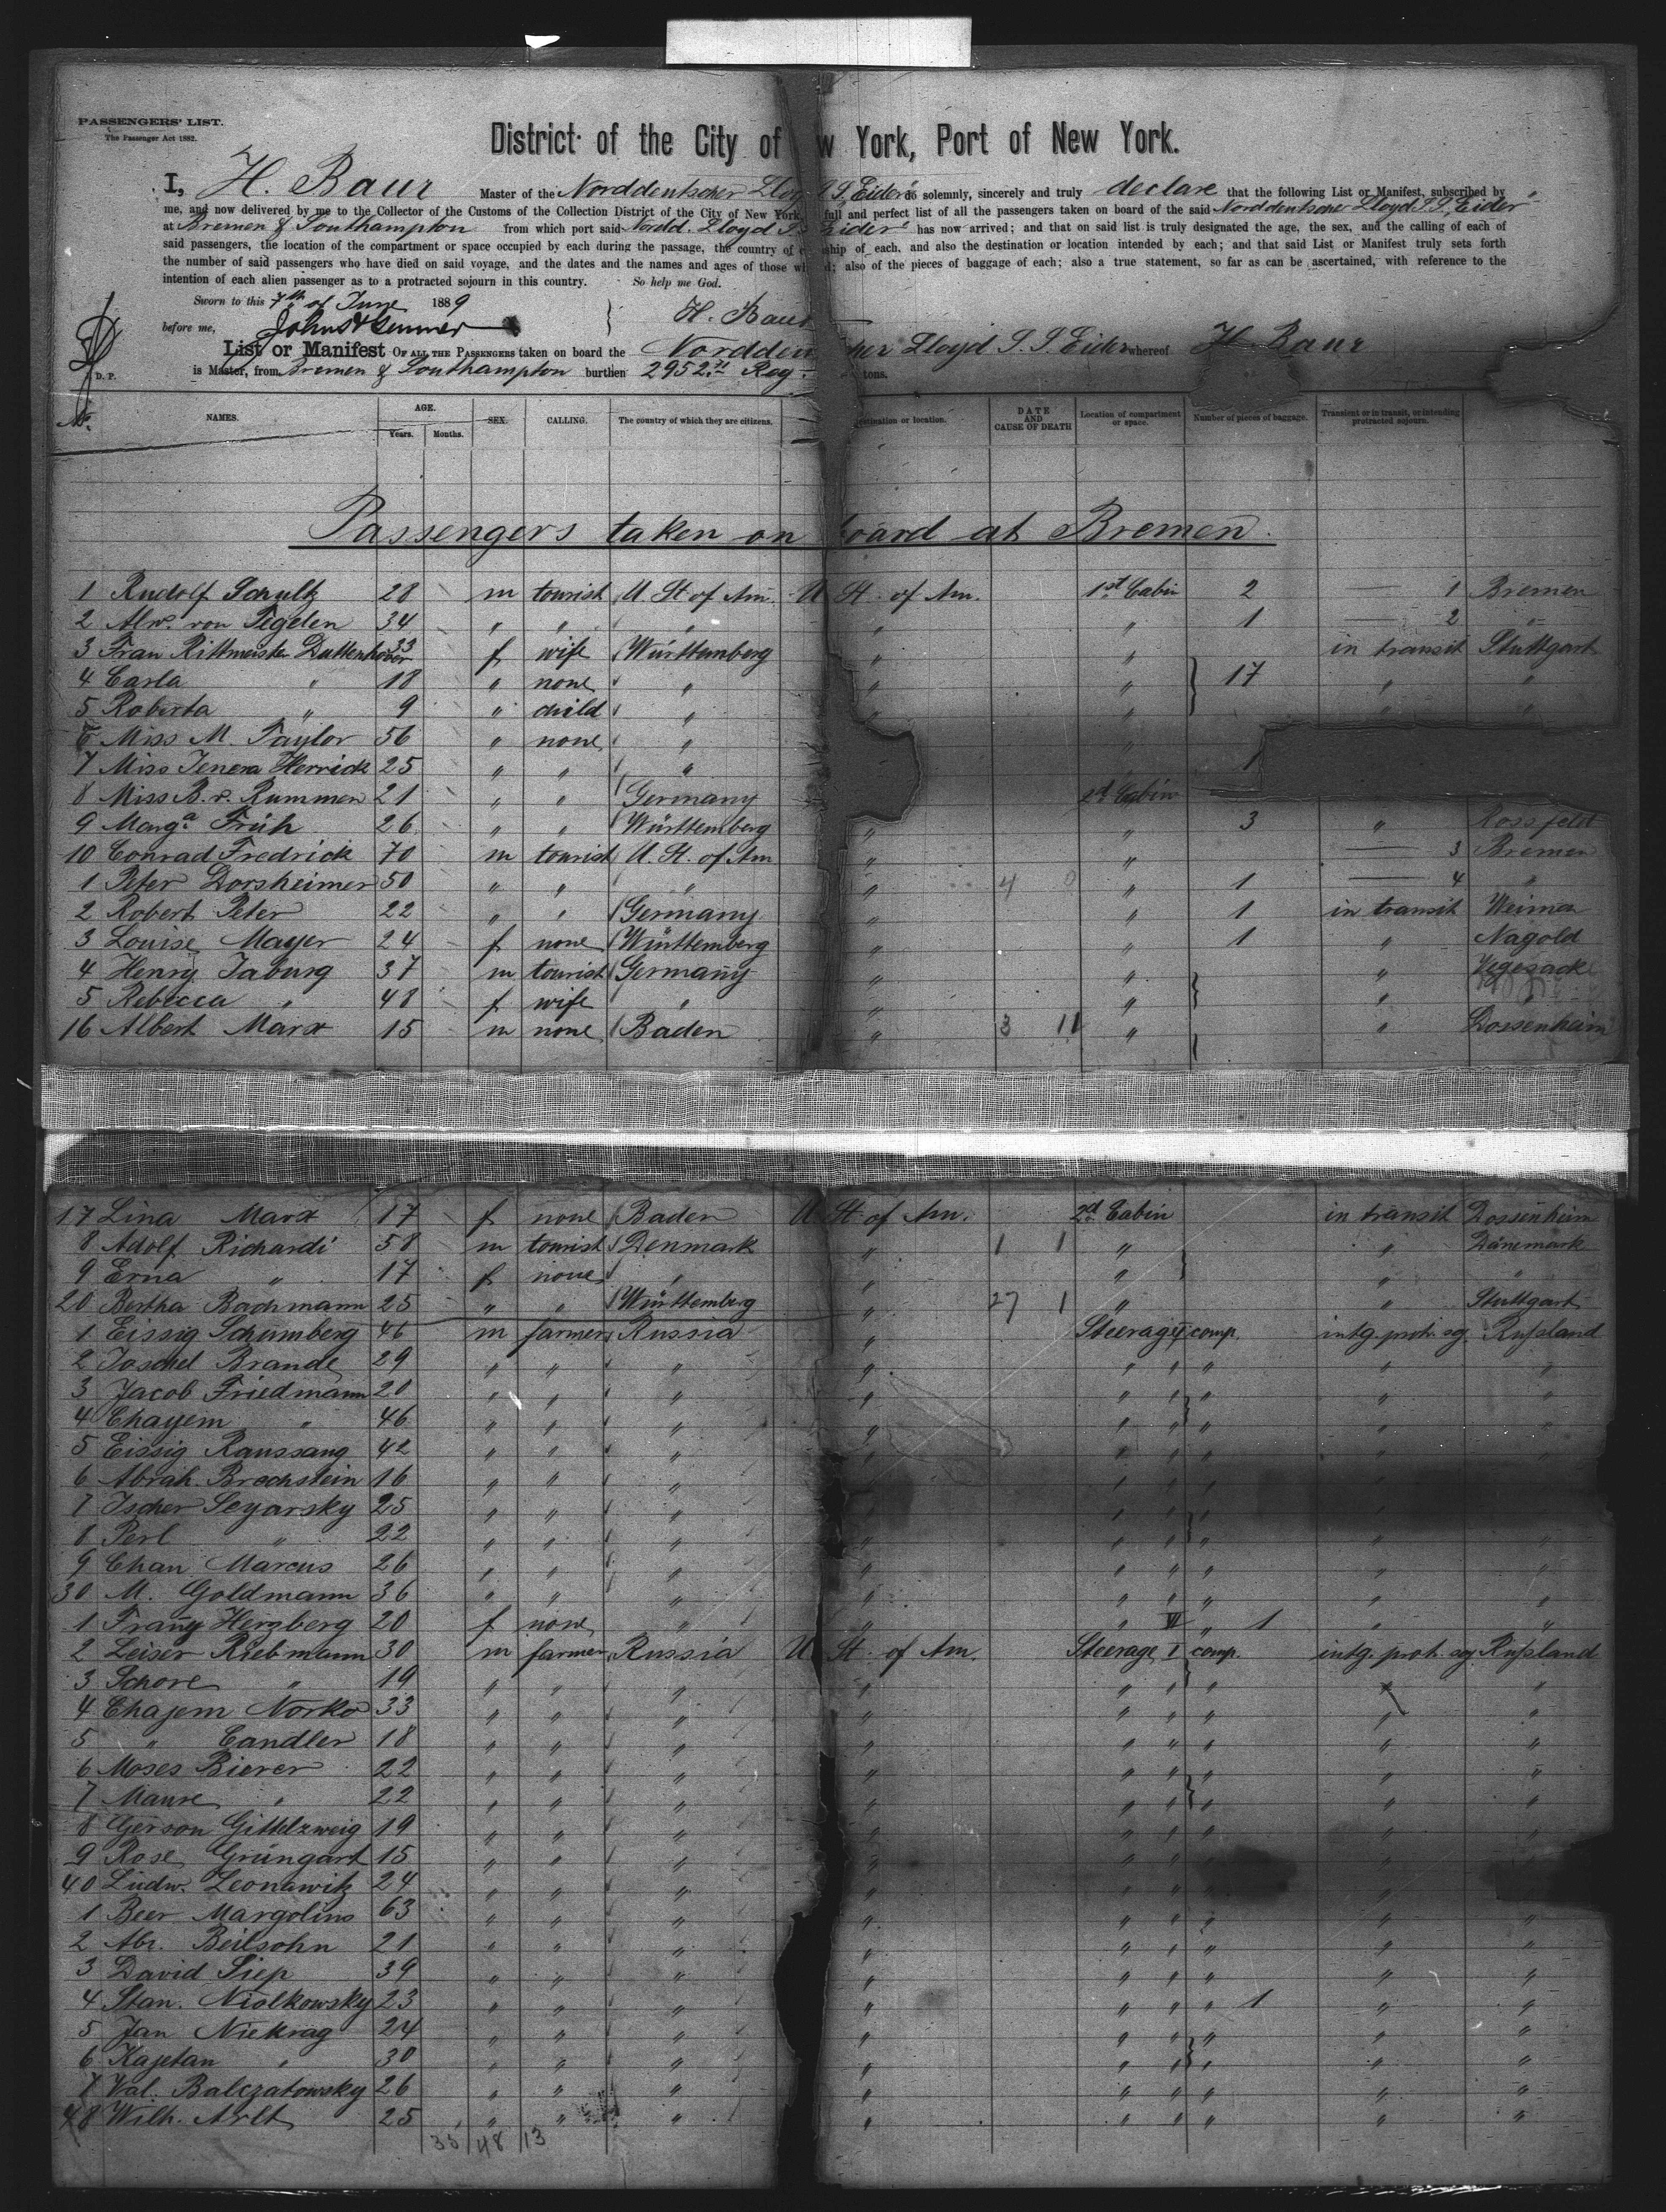 PASSENGERS' LIST.
The Passenger Act 1882.
District of the City of w York, Port of New York.
I, H. Baur Master of the Norddeutscher Lloyd S. S. Eider do solemnly, sincerely and truly declare that the following List or Manifest, subscribed by
me, and now delivered by me to the Collector of the Customs of the Collection District of the City of New York, full and perfect list of all the passengers taken on board of the said Norddeutscher Lloyd S. S. "Eider"
at Bremen & Southampton from which port said Nordd. Lloyd S. Eider has now arrived; and that on said list is truly designated the age, the sex, and the calling of each of
said passengers, the location of the compartment or space occupied by each during the passage, the country of ship of each, and also the destination or location intended by each; and that said List or Manifest truly sets forth
the number of said passengers who have died on said voyage, and the dates and the names and ages of those wh d; also of the pieces of baggage of each; also a true statement, so far as can be ascertained, with reference to the
intention of each alien passenger as to a protracted sojourn in this country. So help me God.
Sworn to this 7th of June 1889
before me, } H. Baur
List or Manifest OF ALL THE PASSENGERS taken on board the Nordden cher Lloyd S. S. Eider whereof H. Baur
D. P. is Master, from Bremen & Southampton burthen 2952 Reg. tons.
No. NAMES. AGE. Years. Months. SEX. CALLING. The country of which they are citizens. destination or location. DATE AND CAUSE OF DEATH Location of compartment or space. Number of pieces of baggage. Transient or in transit, or intending protracted sojourn.
Passengers taken on board at Bremen.
1 Rudolf Schultz 28 m tourist U. St of Am. U St. of Am. 1st Cabin 2 — 1 Bremen
2 Alw. von Tegelen 34 " " " " " 1 — 2 "
3 Frau Rittmeister Duttenhover 33 f wife Württemberg " " in transit Stuttgart
4 Carla " 18 " none " " " } 17 " "
5 Roberta " 9 " child " " " " "
6 Miss M. Taylor 56 " none " "
7 Miss Tenera Herrick 25 " " " 1
8 Miss B. v. Rummen 21 " " Germany 2d Cabin
9 Marga Früh 26 " " Württemberg " " 3 " Rossfeld
10 Conrad Fredrick 70 m tourist U. St. of Am " " — 3 Bremen
1 Peter Dorsheimer 50 " " " " 4 0 " 1 — 4 "
2 Robert Peter 22 " " Germany " " 1 in transit Weimar
3 Louise Mayer 24 f none Württemberg " " 1 " Nagold
4 Henry Jaburg 37 m tourist Germany " " } " Vegesack
5 Rebecca " 48 f wife " " " "
16 Albert Marx 15 m none Baden " 3 11 " " Dossenheim
17 Lina Marx 17 f none Baden U St of Am. 2d Cabin in transit Dossenheim
8 Adolf Richardi 58 m tourist Denmark " 1 1 " } " Dänemark
9 Erna " 17 f none " " " " "
20 Bertha Bachmann 25 " " Württemberg " 27 1 " " Stuttgart
1 Eissig Schumberg 46 m farmer Russia " Steerage I comp. intg. prot. sg. Rußland
2 Joschel Brande 29 " " " " " " " " "
3 Jacob Friedmann 20 " " " " " " " } " "
4 Chayem " 46 " " " " " " " " "
5 Eissig Raussang 42 " " " " " " " " "
6 Abrah. Brechstein 16 " " " " " " "
7 Ischer Segarsky 25 " " " " " " " "
8 Perl " 22 " " " " " " } " " "
9 Chan Marcus 26 " " " " " " " " "
30 M. Goldmann 36 " " " " " " " " "
1 Franny Herzberg 20 f none " " " VI " 1 " "
2 Leiser Riebmann 30 m farmer Russia U St. of Am. Steerage I comp. intg. prot. sg Rußland
3 Schore " 19 " " " " " " } " " "
4 Chajem Norko 33 " " " " " " " " "
5 " Candler 18 " " " " " " " " "
6 Moses Bierer 22 " " " " " " " " "
7 Maure " 22 " " " " " " } " " "
8 Gerson Gittelzweig 19 " " " " " " " " "
9 Rose Grüngart 15 " " " " " " " "
40 Ludw. Leonawitz 24 " " " " " " "
1 Beer Margolins 63 " " " " " " " " "
2 Abr. Beilsohn 21 " " " " " " " " "
3 David Siep 39 " " " " " " " " "
4 Stan. Niolkowsky 23 " " " " " " " 1 " "
5 Jan Niekrag 24 " " " " " " " " "
6 Kajetan " 30 " " " " " " } " " "
7 Val. Balczatowsky 26 " " " " " " " " "
48 Wilh. Arlt 25 " " " " " " " " "
35 48 13